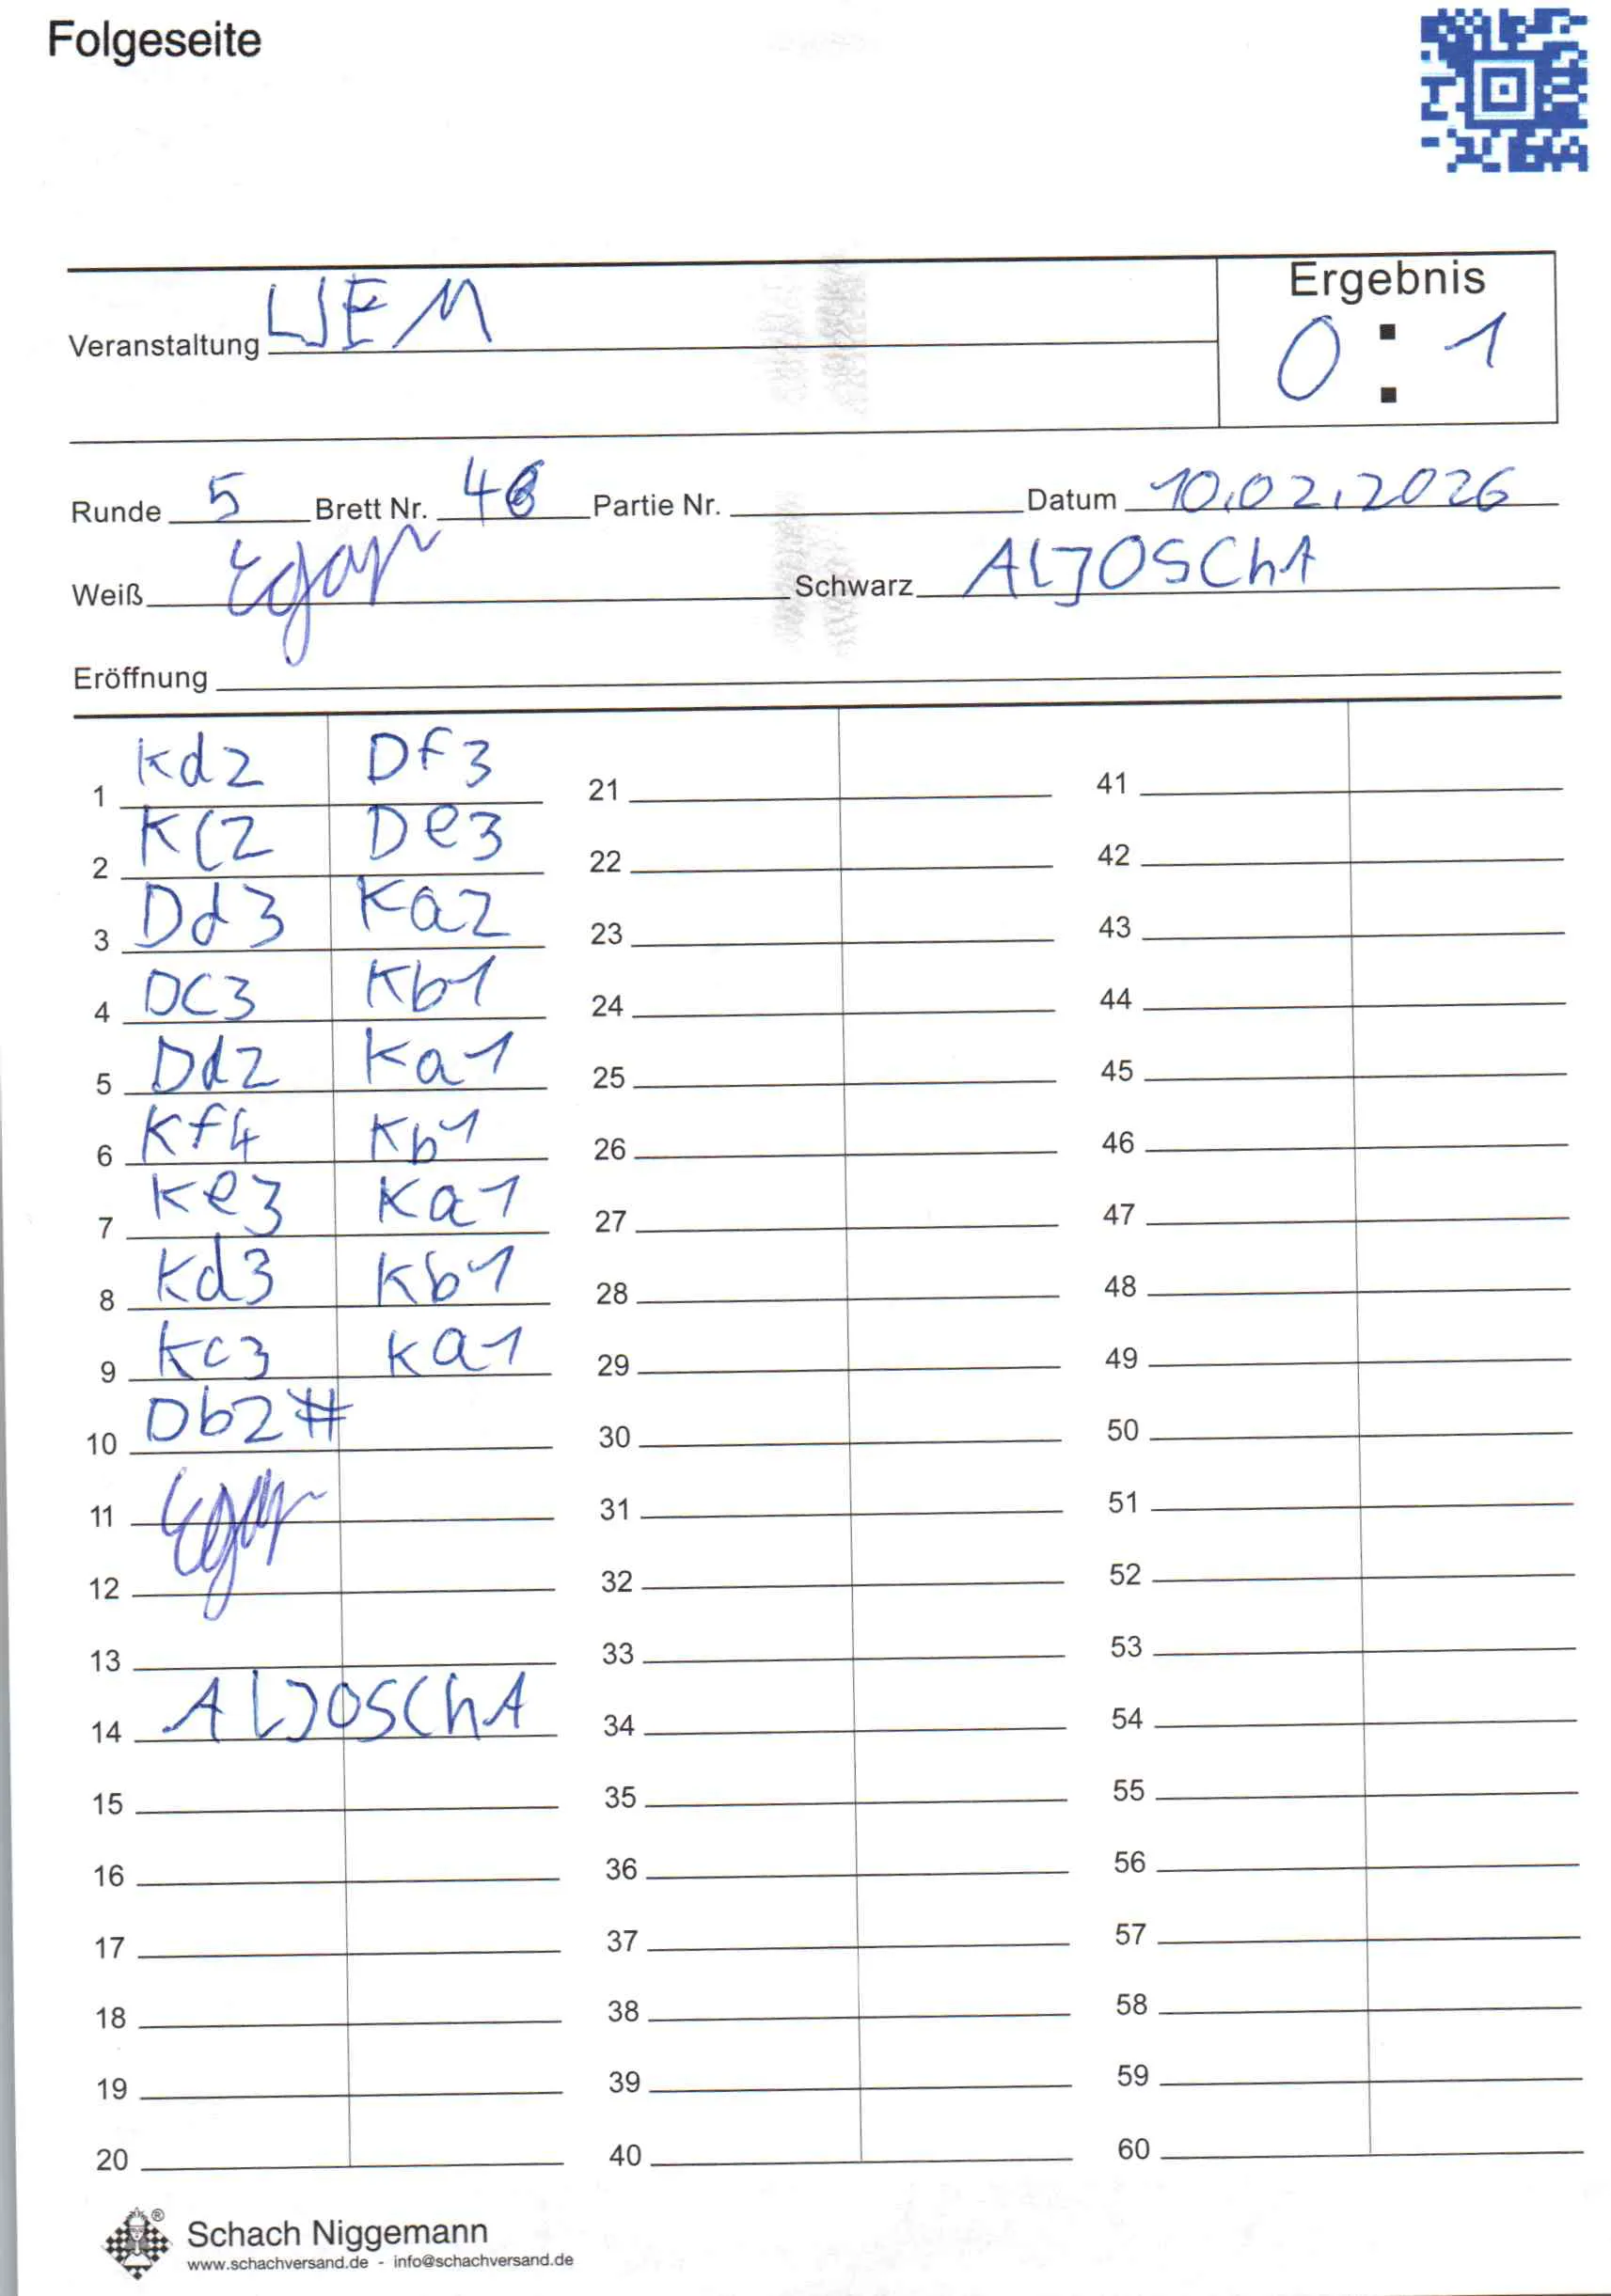 Folgeseite
Veranstaltung LJEM
Ergebnis
0 : 1
Runde 5 Brett Nr. 46 Partie Nr. Datum 10.02.2026
Weiß Schwarz ALJOSChA
Eröffnung
1 Kd2 Df3 21 41
2 Kc2 De3 22 42
3 Dd3 Ka2 23 43
4 DC3 Kb1 24 44
5 Dd2 Ka1 25 45
6 Kf4 Kb1 26 46
7 Ke3 Ka1 27 47
8 Kd3 Kb1 28 48
9 Kc3 Ka1 29 49
10 Db2# 30 50
11 31 51
12 32 52
13 33 53
14 ALJOSChA 34 54
15 35 55
16 36 56
17 37 57
18 38 58
19 39 59
20 40 60
Schach Niggemann
www.schachversand.de - info@schachversand.de